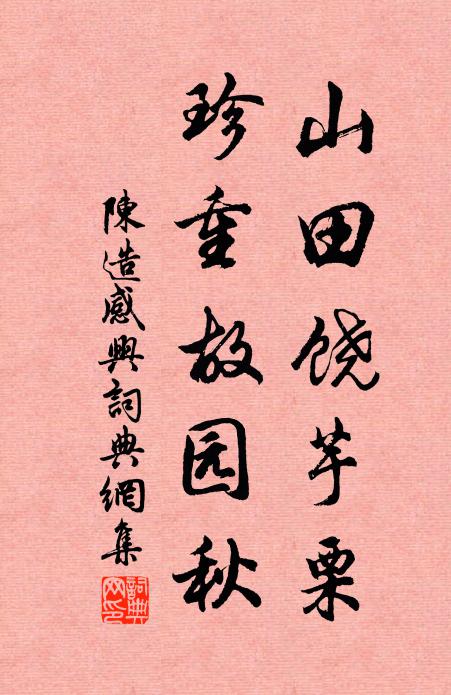 山田饶芋栗
珍重故园秋
陳造感興詞典網集
詞典网印